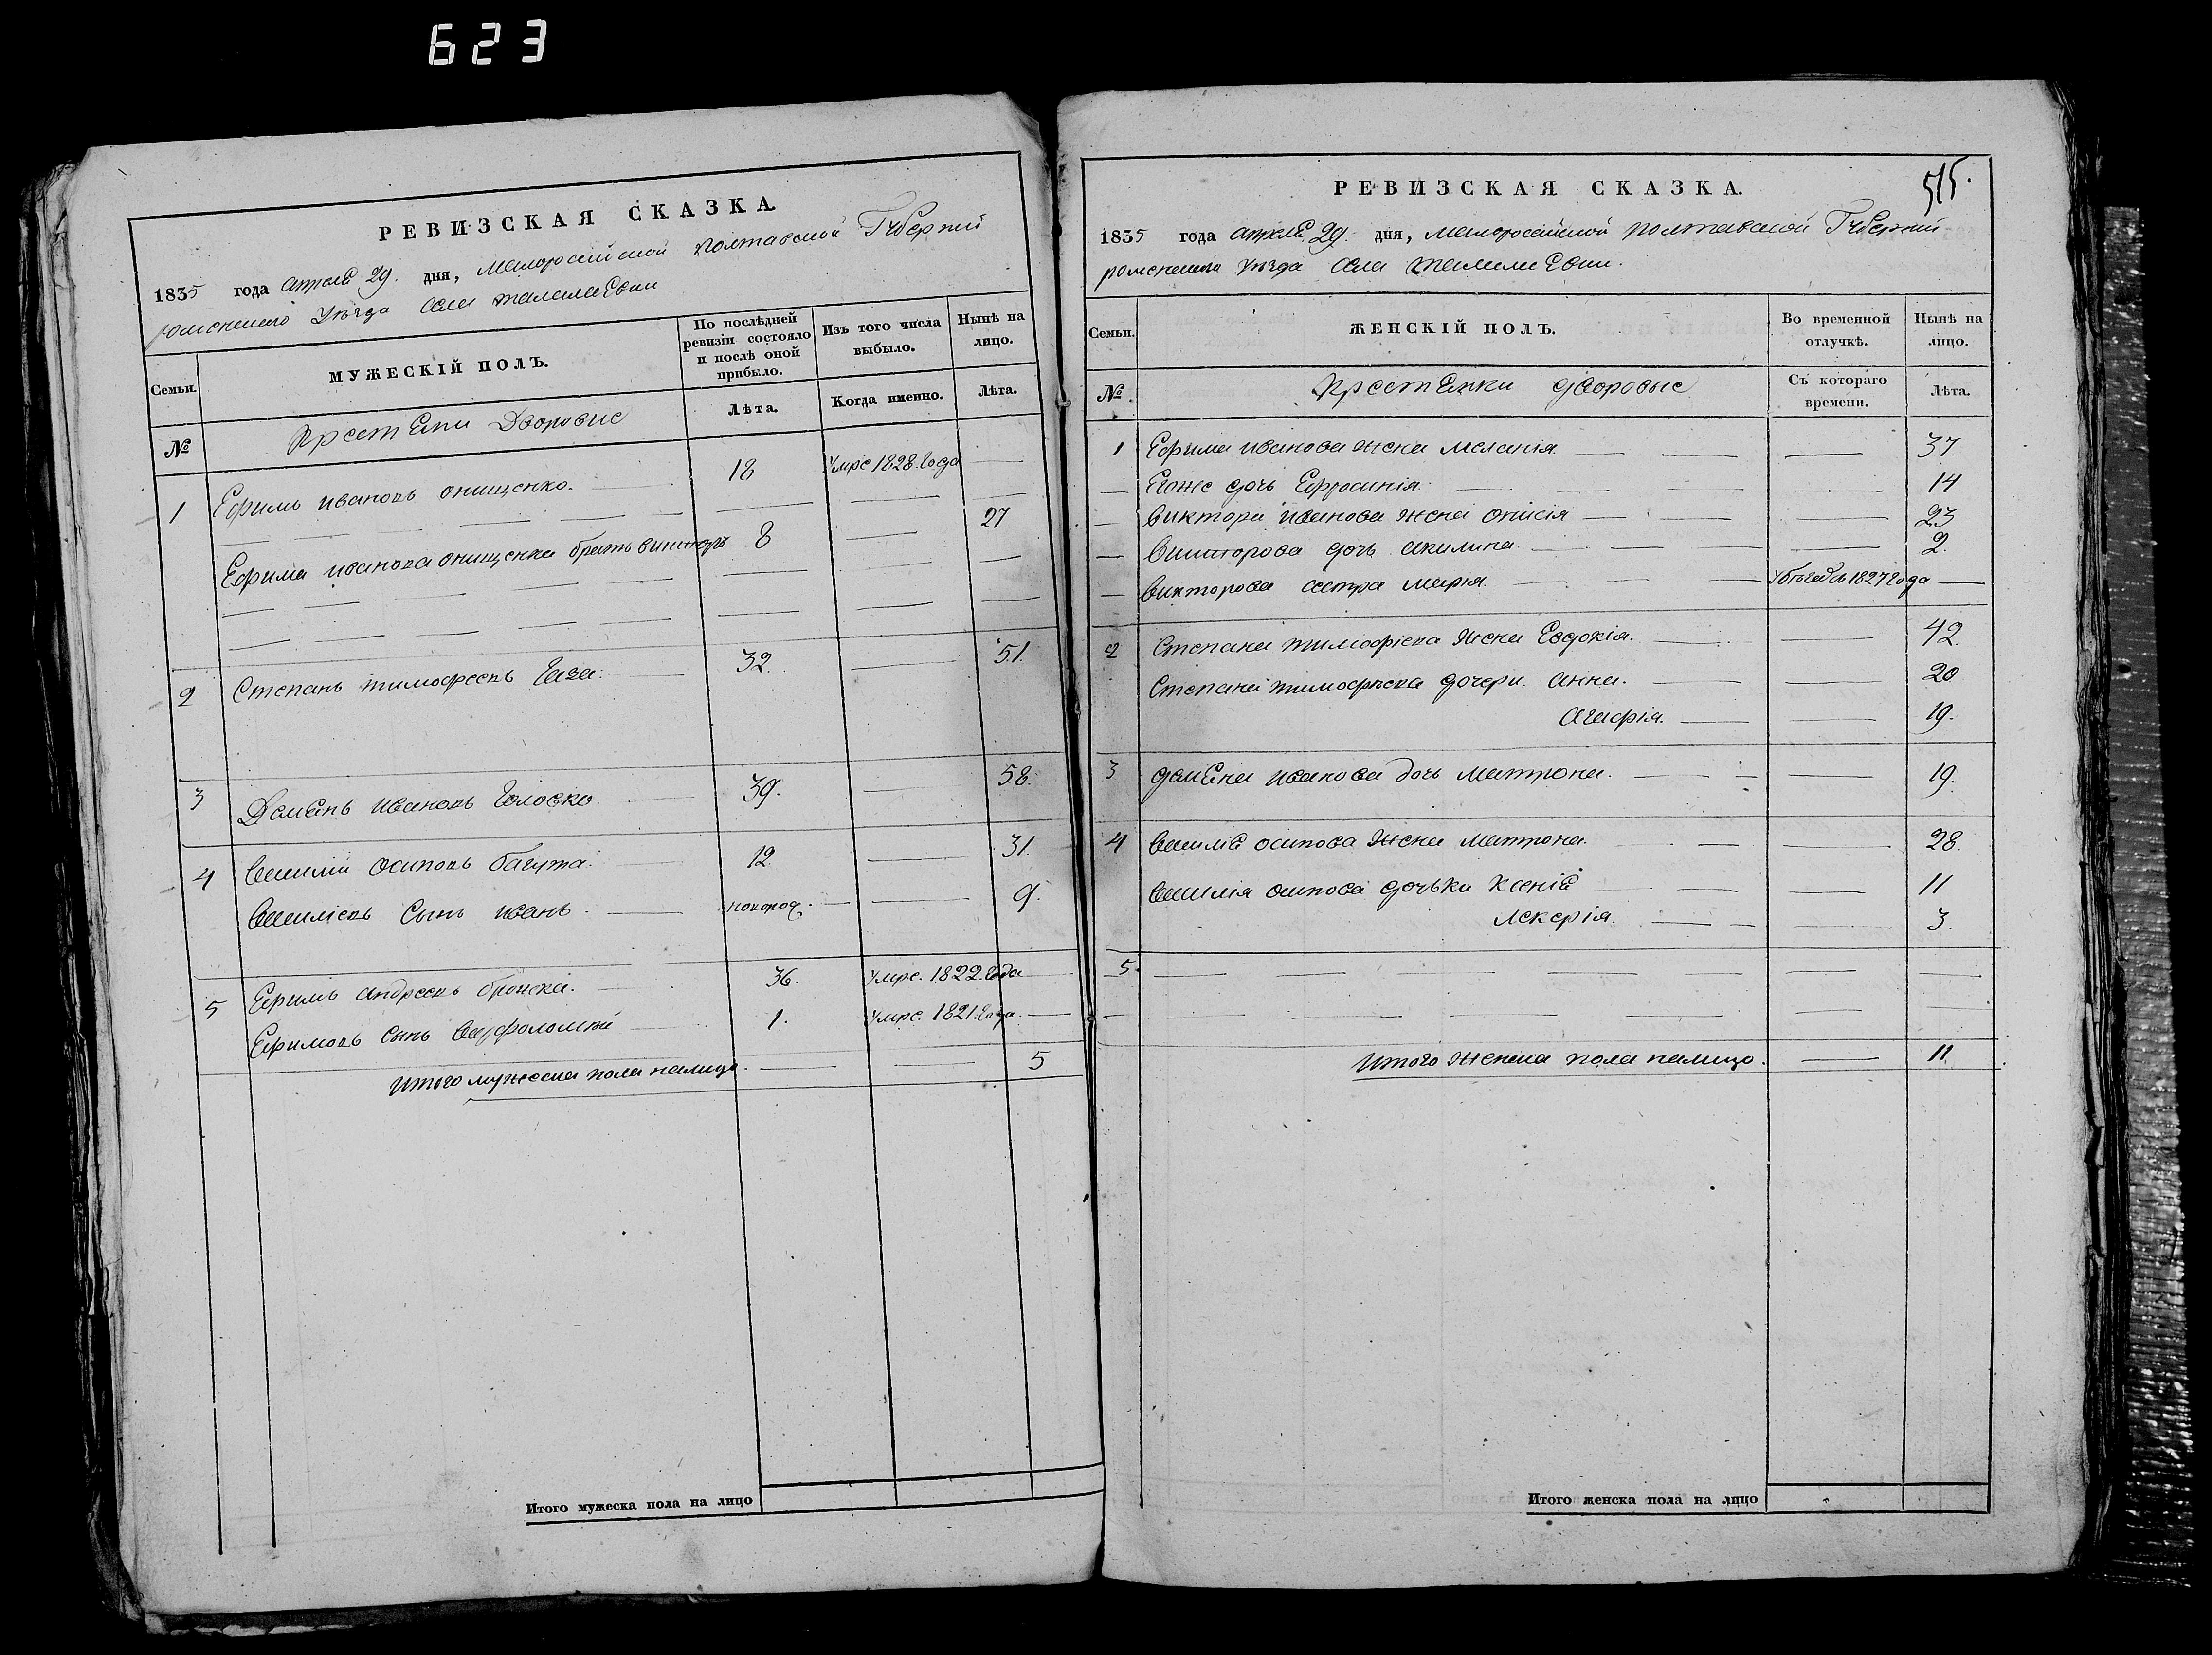 623
РЕВИЗСКАЯ СКАЗКА.
1835 года апреля 29. дня, Малоросійской Полтавской Губерніи
роменского уезда села талалаевки
Семьи.
МУЖЕСКІЙ ПОЛЪ.
По послѣдней ревизіи состояло и послѣ оной прибыло.
Изъ того числа выбыло.
Нынѣ на лицо.
№
крестяни Дворовие
Лѣта.
Когда именно.
Лѣта.
1 Ефимъ ивановъ онищенко. 18 Умре 1828. года
Ефима иванова онищенка братъ викторъ 8 27
2 Степанъ тимофеевъ 32. 51.
3 Демянъ ивановъ Головко 39. 58.
4 Василий осиповъ багута. 12. 31.
Василіевъ Сынъ иванъ. новород. 9.
5 Ефимъ андреевъ 36. Умре. 1822. года
Ефимовъ Сынъ Варфоломей 1. Умре. 1821. года.
итого мужеска пола налицо. 5
Итого мужеска пола на лицо
515.
РЕВИЗСКАЯ СКАЗКА.
1835 года апреля 29. дня, малоросійской полтавской Губерніи
роменского уезда села талалаевки.
Семьи.
ЖЕНСКІЙ ПОЛЪ.
Во временной отлучкѣ.
Нынѣ на лицо.
№.
крестянки дворовые
Съ котораго времени.
Лѣта.
1 Ефима иванова жена меланія 37.
Егоже дочь Ефросинія 14
Виктора иванова жена 23
Викторова дочь акилина 2.
Викторова сестра марія. 1827 года
2 Степана тимофіева жена Евдокія. 42
Степана тимофѣева дочери. анна. 20
Агафія. 19.
3 демяна иванова дочь матрона. 19.
4 Василія осипова жена матрона. 28.
Василія осипова дочьки ксенія 11
лекерія. 3.
5.
итого женска пола налицо. 11.
Итого женска пола на лицо